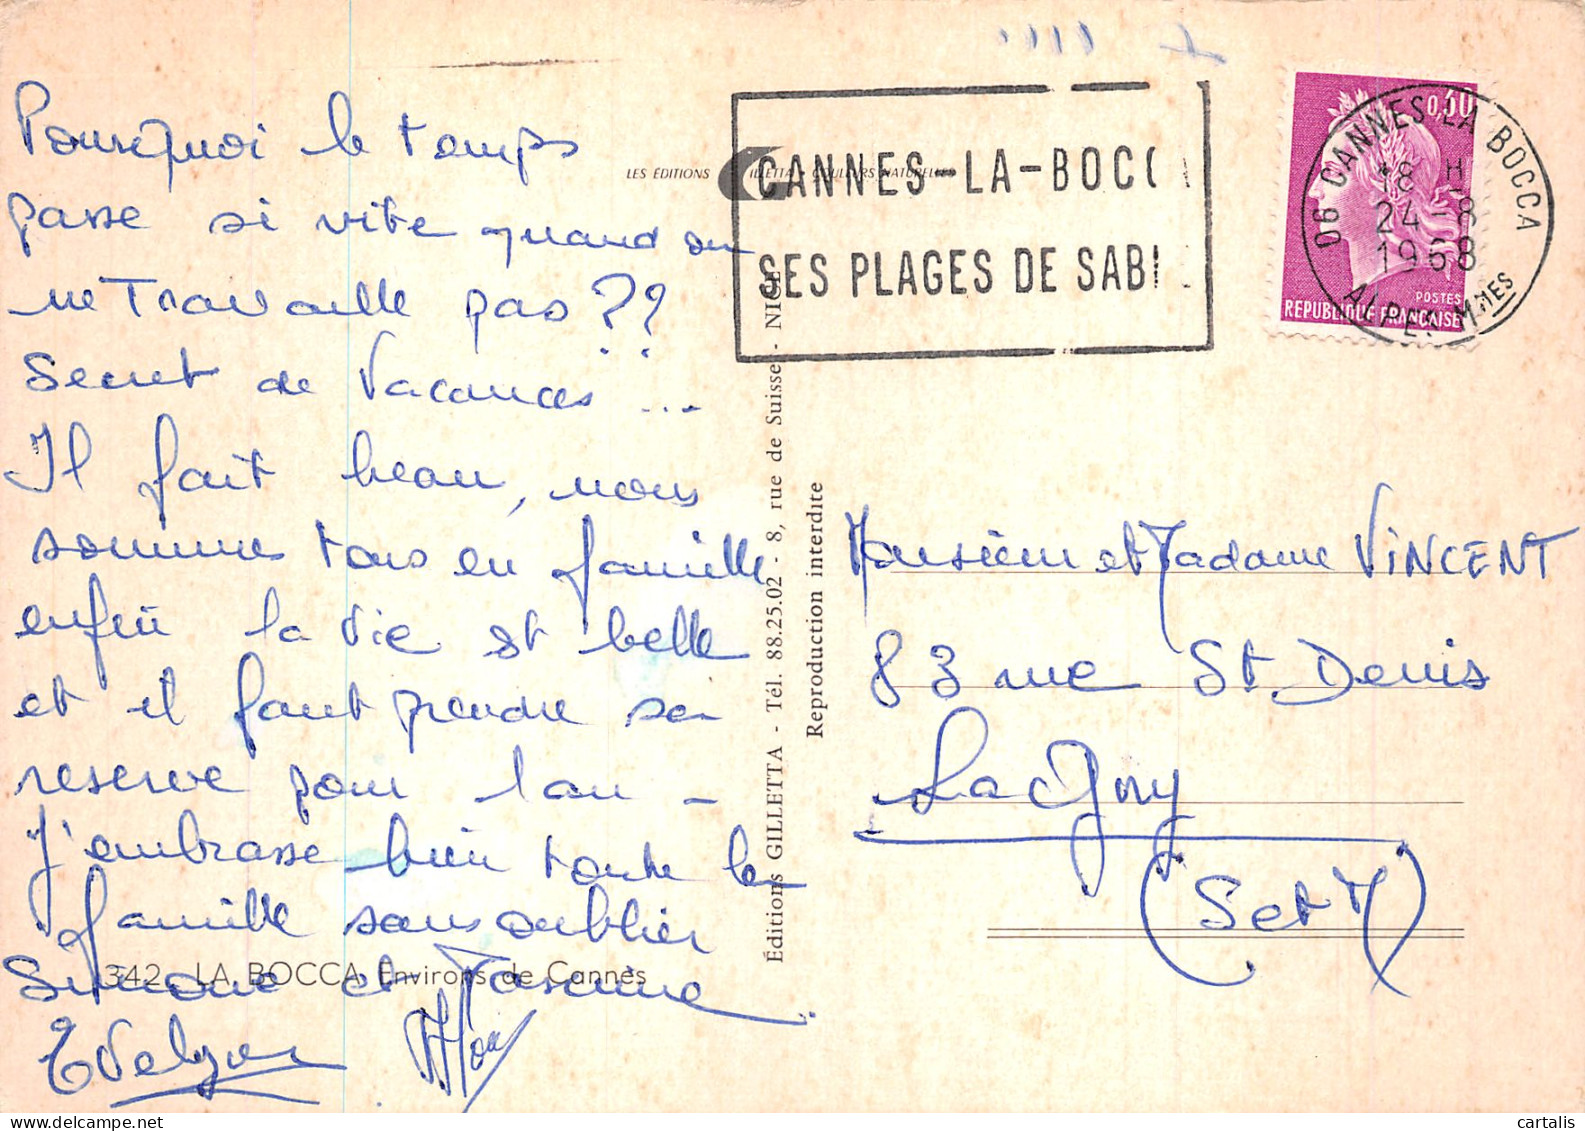 Pourquoi le temps
passe si vite quand on
ne Travaille pas ??
Secret de Vacances ...
Il fait beau, nous
sommes tous en famille
enfin la vie est belle
et il faut prendre sa
reserve pour l'an -
J'embrasse bien toute la
famille sans oublier
Simone et
Evelyne
342 - LA BOCCA Environs de Cannes
LES ÉDITIONS GILLETTA - COULEURS NATURELLES
Éditions GILLETTA - Tél. 88.25.02 - 8, rue de Suisse - NICE
Reproduction interdite
CANNES-LA-BOCC
SES PLAGES DE SABL
0,30
POSTES
REPUBLIQUE FRANÇAISE
06 CANNES-LA BOCCA
18 H
24-8
1968
ALPES MMES
Monsieur et Madame VINCENT
83 rue St. Denis
Lagny
(S et M)
cartalis